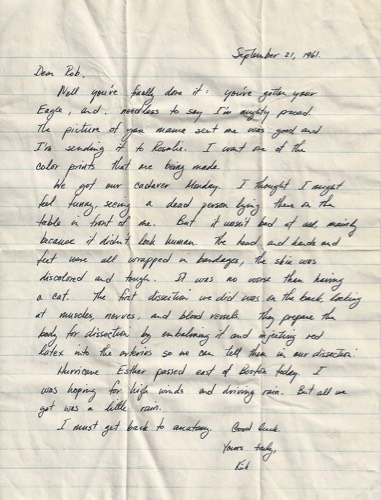 September 21, 1961.
Dear Rob,
Well you've finally done it: you've gotten your
Eagle, and, needless to say I'm mighty proud.
The picture of you mama sent me was good and
I'm sending it to Rosalie. I want one of the
color prints that are being made.
We got our cadaver Monday. I thought I might
feel funny, seeing a dead person lying there on the
table in front of me. But it wasn't bad at all, mainly
because it didn't look human. The head and hands and
feet were all wrapped in bandages, the skin was
discolored and tough. It was no worse than having
a cat. The first dissection we did was on the back, looking
at muscles, nerves, and blood vessels. They prepare the
body for dissection by embalming it and injecting red
latex into the arteries so we can tell them in our dissection.
Hurricane Esther passed east of Boston today. I
was hoping for high winds and driving rain. But all we
got was a little rain.
I must get back to anatomy. Good luck.
Yours truly,